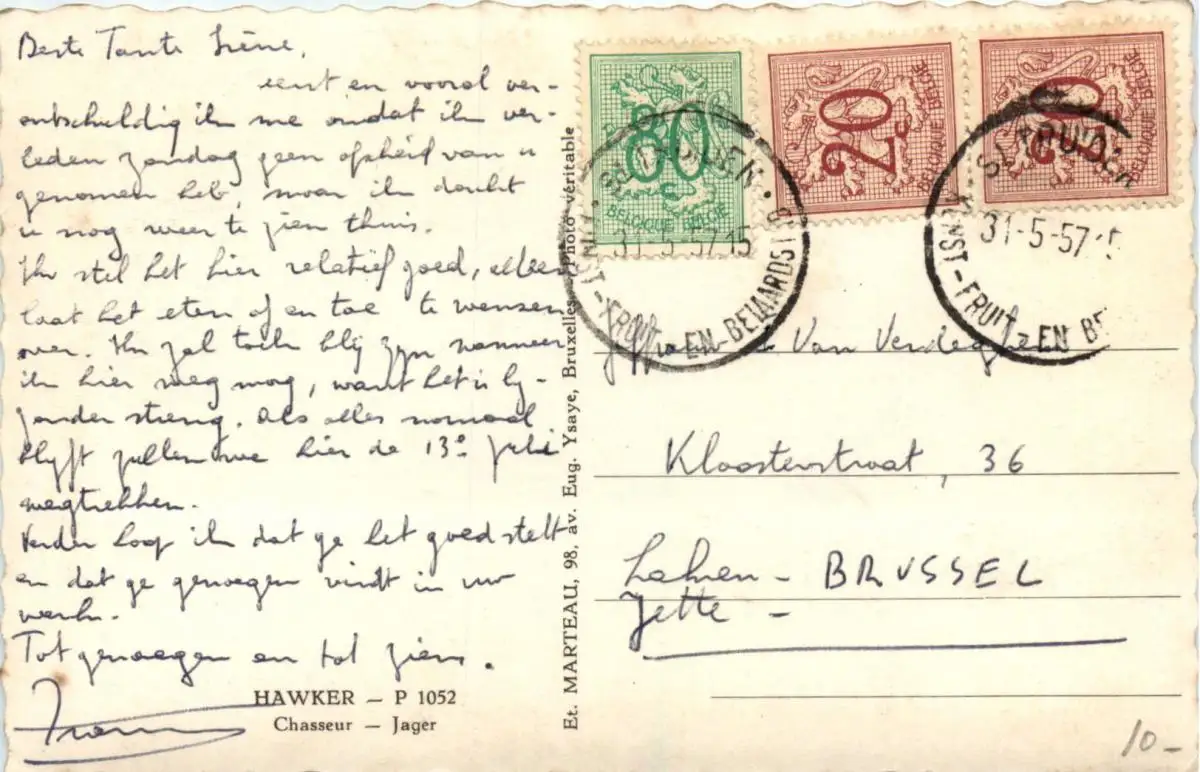 Beste Tante Irène,
eerst en vooral ver-
ontschuldig ik me omdat ik ver-
leden zondag geen afscheid van u
genomen heb, maar ik dacht
u nog weer te zien thuis.
Ik stel het hier relatief goed, alleen
laat het eten af en toe te wensen
over. Ik zal toch blij zijn wanneer
ik hier weg mag, want het is by-
zonder streng. Als alles normaal
blijft zullen we hier de 13e juli
wegtrekken.
Verder hoop ik dat ge het goed stelt
en dat ge genoegen vindt in uw
werk.
Tot genoegen en tot ziens.
HAWKER — P 1052
Chasseur — Jager
Et. MARTEAU, 98, av. Eug. Ysaye, Bruxelles - Photo véritable
80
BELGIQUE BELGIE
20
BELGIQUE BELGIE
20
BELGIQUE BELGIE
ST TRUIDEN
31-5-57 15
KUNST-FRUIT EN BEIAARDST
ST TRUIDEN
31-5-57
KUNST-FRUIT EN BE
Van Verdeghem
Kloosterstraat, 36
Laken - BRUSSEL
Jette -
10 -